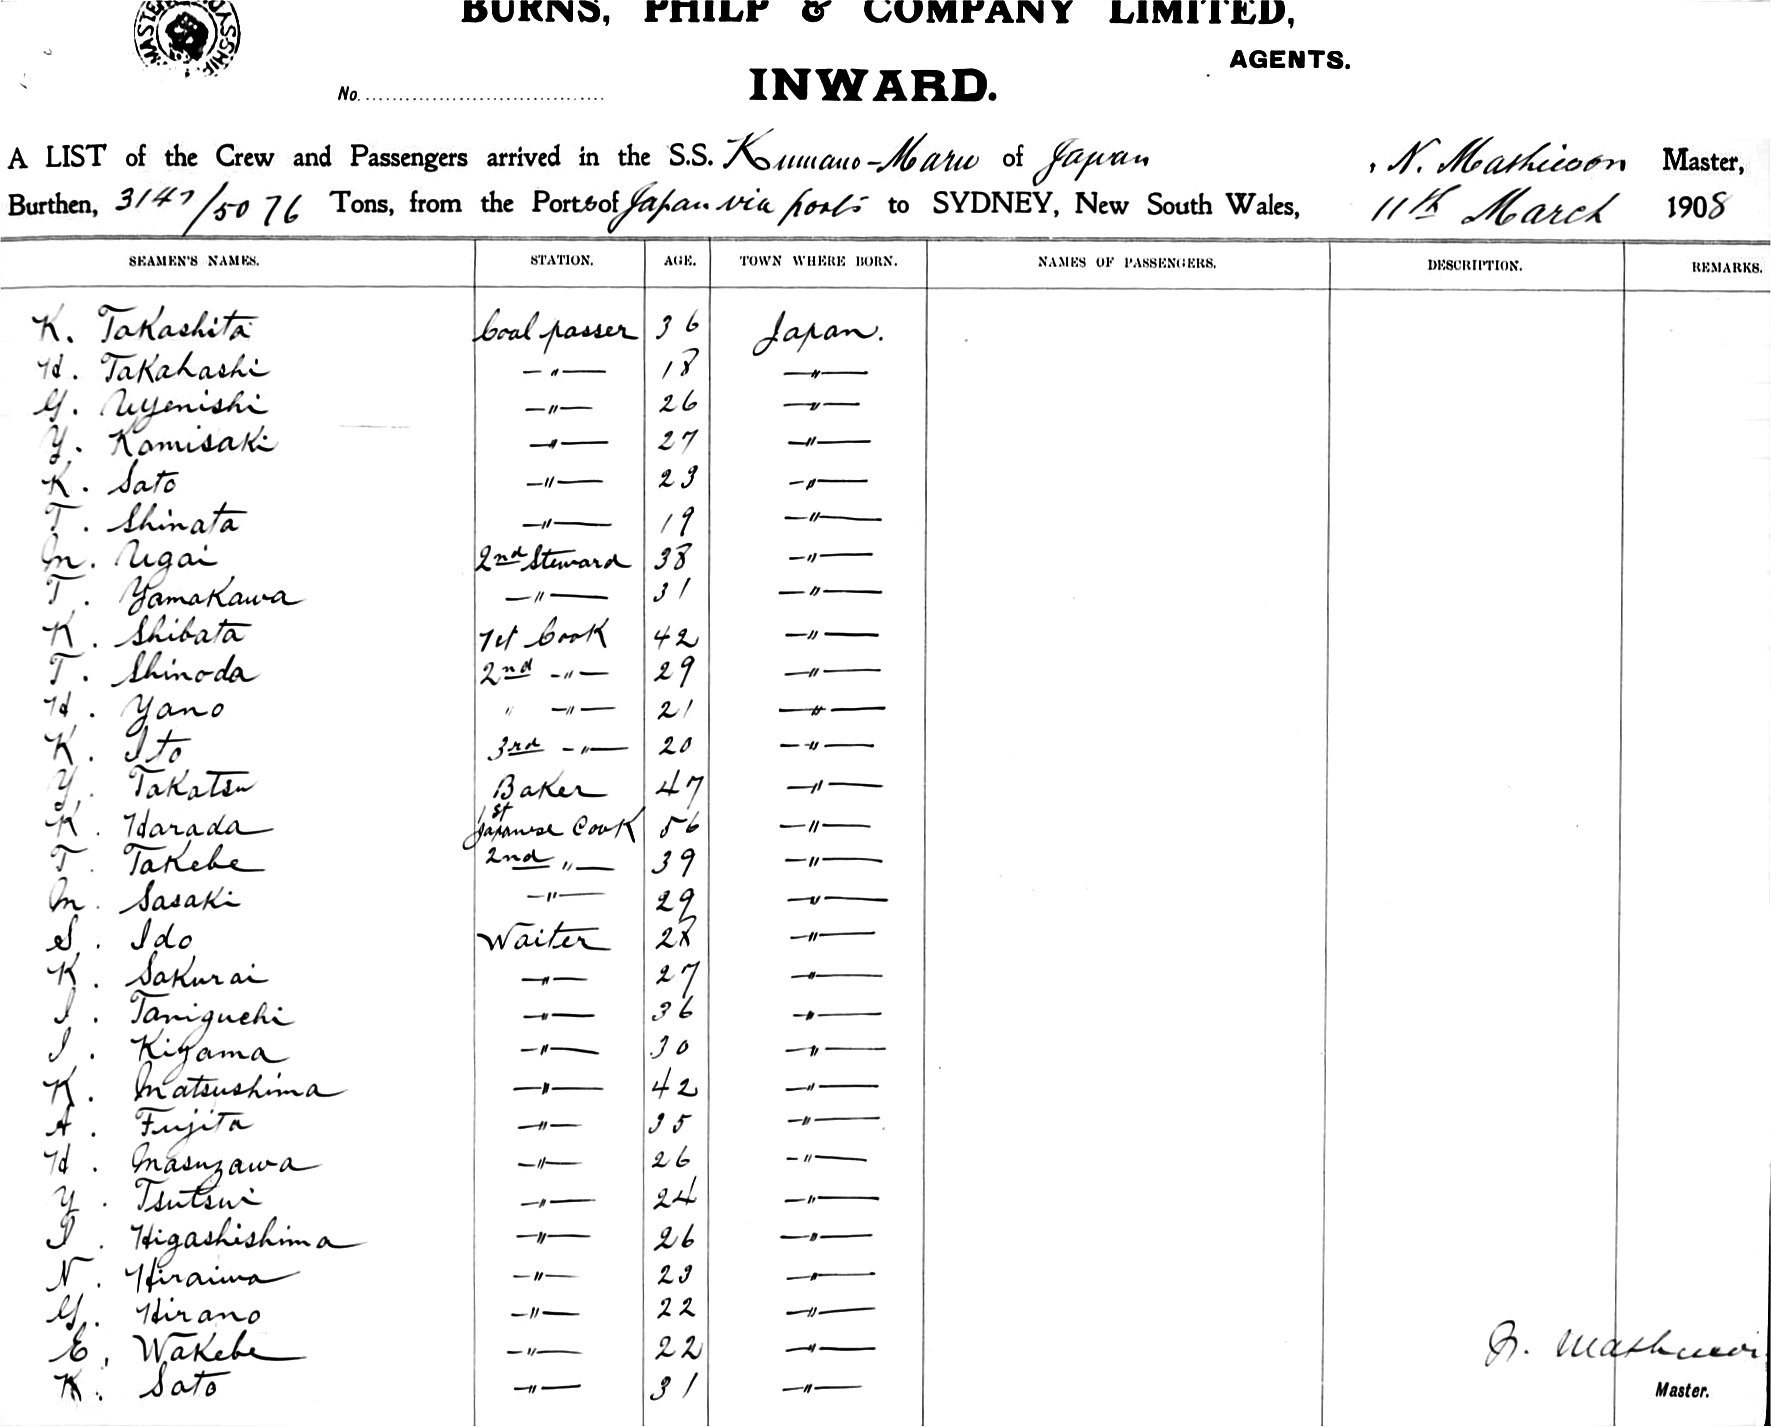 BURNS, PHILP & COMPANY LIMITED,
AGENTS.
INWARD.
No.
A LIST of the Crew and Passengers arrived in the S.S. Kumano-Maru of Japan , N. Mathieson Master,
Burthen, 3147/5076 Tons, from the Ports of Japan via ports to SYDNEY, New South Wales, 11th March 1908
SEAMEN'S NAMES. STATION. AGE. TOWN WHERE BORN. NAMES OF PASSENGERS. DESCRIPTION. REMARKS.
K. Takashita Coal passer 36 Japan.
H. Takahashi —"— 18 —"—
G. Uyenishi —"— 26 —"—
Y. Kamisaki —"— 27 —"—
K. Sato —"— 23 —"—
T. Shinata —"— 19 —"—
M. Ugai 2nd Steward 38 —"—
T. Yamakawa —"— 31 —"—
K. Shibata 1st Cook 42 —"—
T. Shinoda 2nd —"— 29 —"—
H. Yano " —"— 21 —"—
K. Ito 3rd —"— 20 —"—
Y. Takatsu Baker 47 —"—
K. Harada 1st Japanese Cook 56 —"—
T. Takebe 2nd "— 39 —"—
M. Sasaki —"— 29 —"—
S. Ido Waiter 28 —"—
K. Sakurai —"— 27 —"—
I. Taniguchi —"— 36 —"—
I. Kiyama —"— 30 —"—
K. Matsushima —"— 42 —"—
A. Fujita —"— 35 —"—
H. Masuzawa —"— 26 —"—
Y. Tsutsui —"— 24 —"—
I. Higashishima —"— 26 —"—
N. Hiraiwa —"— 23 —"—
G. Hirano —"— 22 —"—
E. Wakebe —"— 22 —"—
K. Sato —"— 31 —"—
Master.